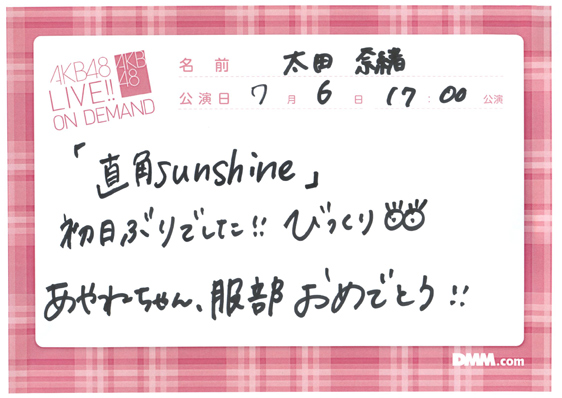 AKB48
LIVE!!
ON DEMAND
AKB
48
名前 太田 奈緒
公演日 7月6日 17:00公演
「直角sunshine」
初日ぶりでした!! びっくり
あやねちゃん、服部おめでとう!!
DMM.com